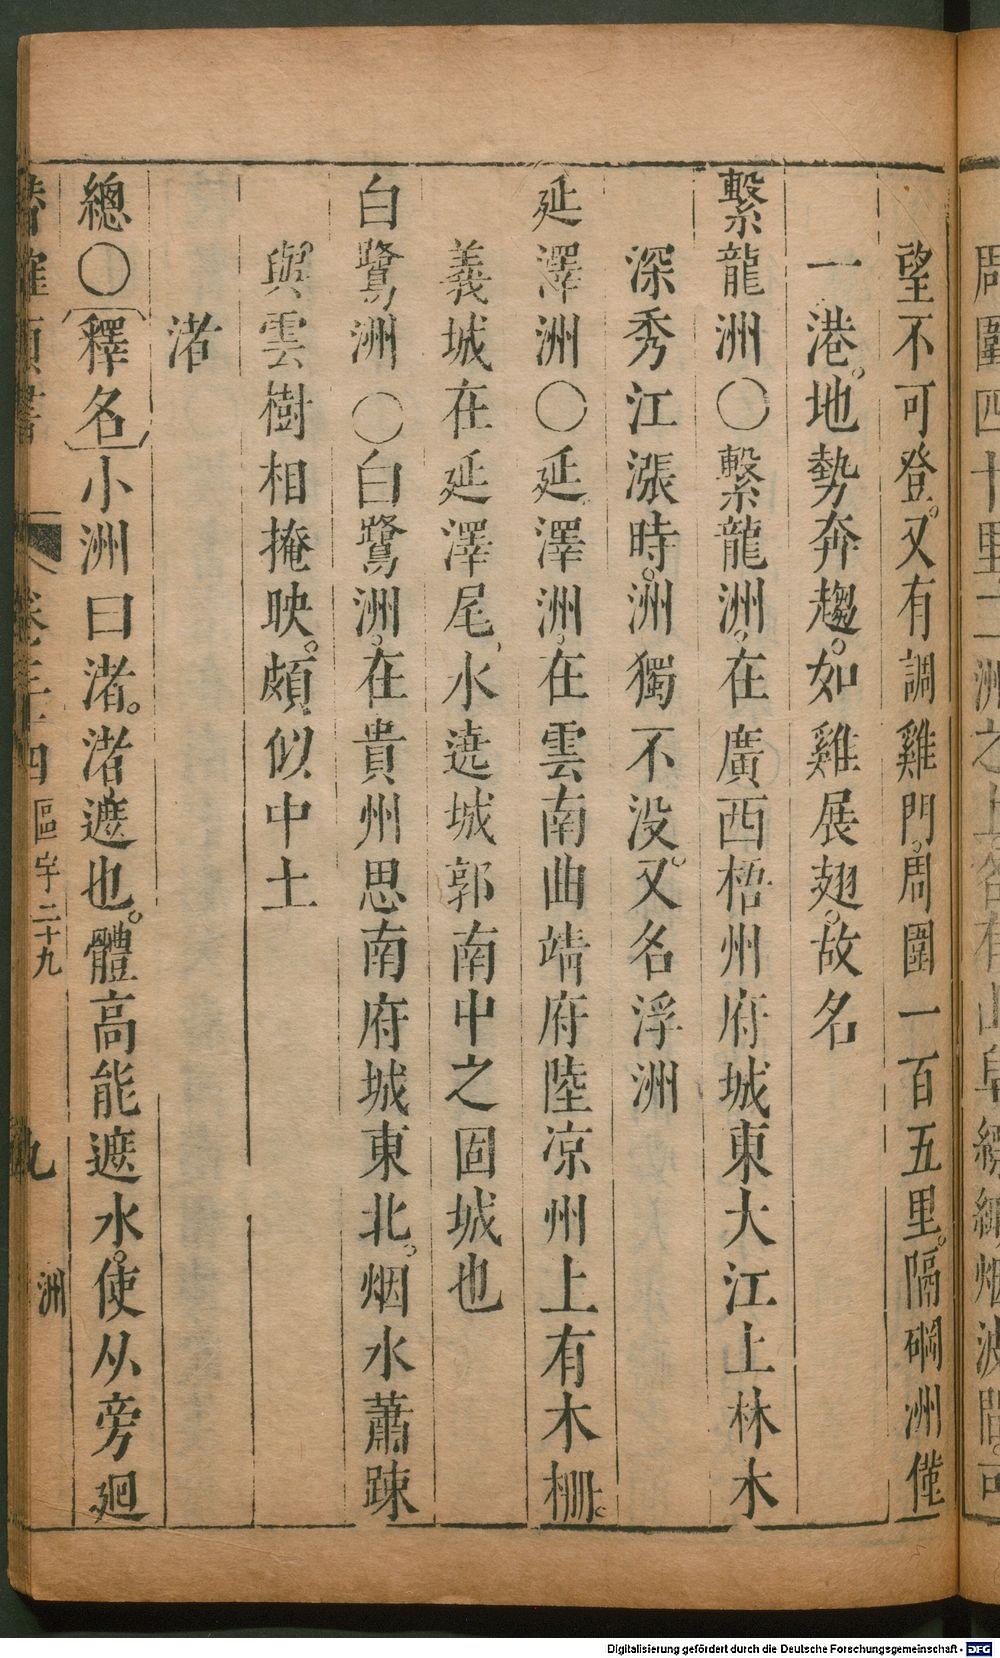 望不可登。又有調雞門。周圍一百五里。隔硇洲僅
一港。地勢奔趨。如雞展翅。故名
繫龍洲○繫龍洲。在廣西梧州府城東大江上林木
深秀江漲時。洲獨不没。又名浮洲
延澤洲○延澤洲。在雲南曲靖府陸凉州上有木栅。
義城在延澤尾、水遶城郭南中之固城也
白鷺洲○白鷺洲。在貴州思南府城東北。烟水蕭踈
與雲樹相掩映。頗似中土
渚
總○釋名小洲曰渚。渚遮也。體高能遮水。使从旁廻
卷三十四 區宇二十九 九 洲
Digitalisierung gefördert durch die Deutsche Forschungsgemeinschaft - DFG